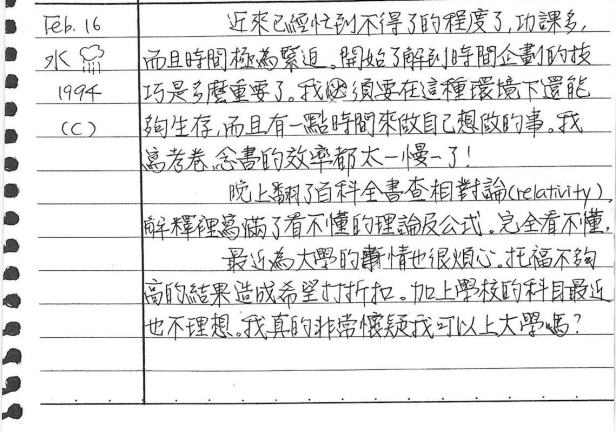 Feb. 16 近來已經忙到不得了的程度了,功課多,
水 而且時間極為緊迫。開始了解到時間企劃的技
1994 巧是多麼重要了。我必須要在這種環境下還能
(C) 夠生存,而且有一點時間來做自己想做的事。我
寫考卷、念書的效率都太—慢—了!
晚上翻了百科全書查相對論(relativity),
解釋裡寫滿了看不懂的理論及公式。完全看不懂,
最近為大學的事情也很煩心。托福不夠
高的結果造成希望打折扣。加上學校的科目最近
也不理想。我真的非常懷疑我可以上大學嗎?